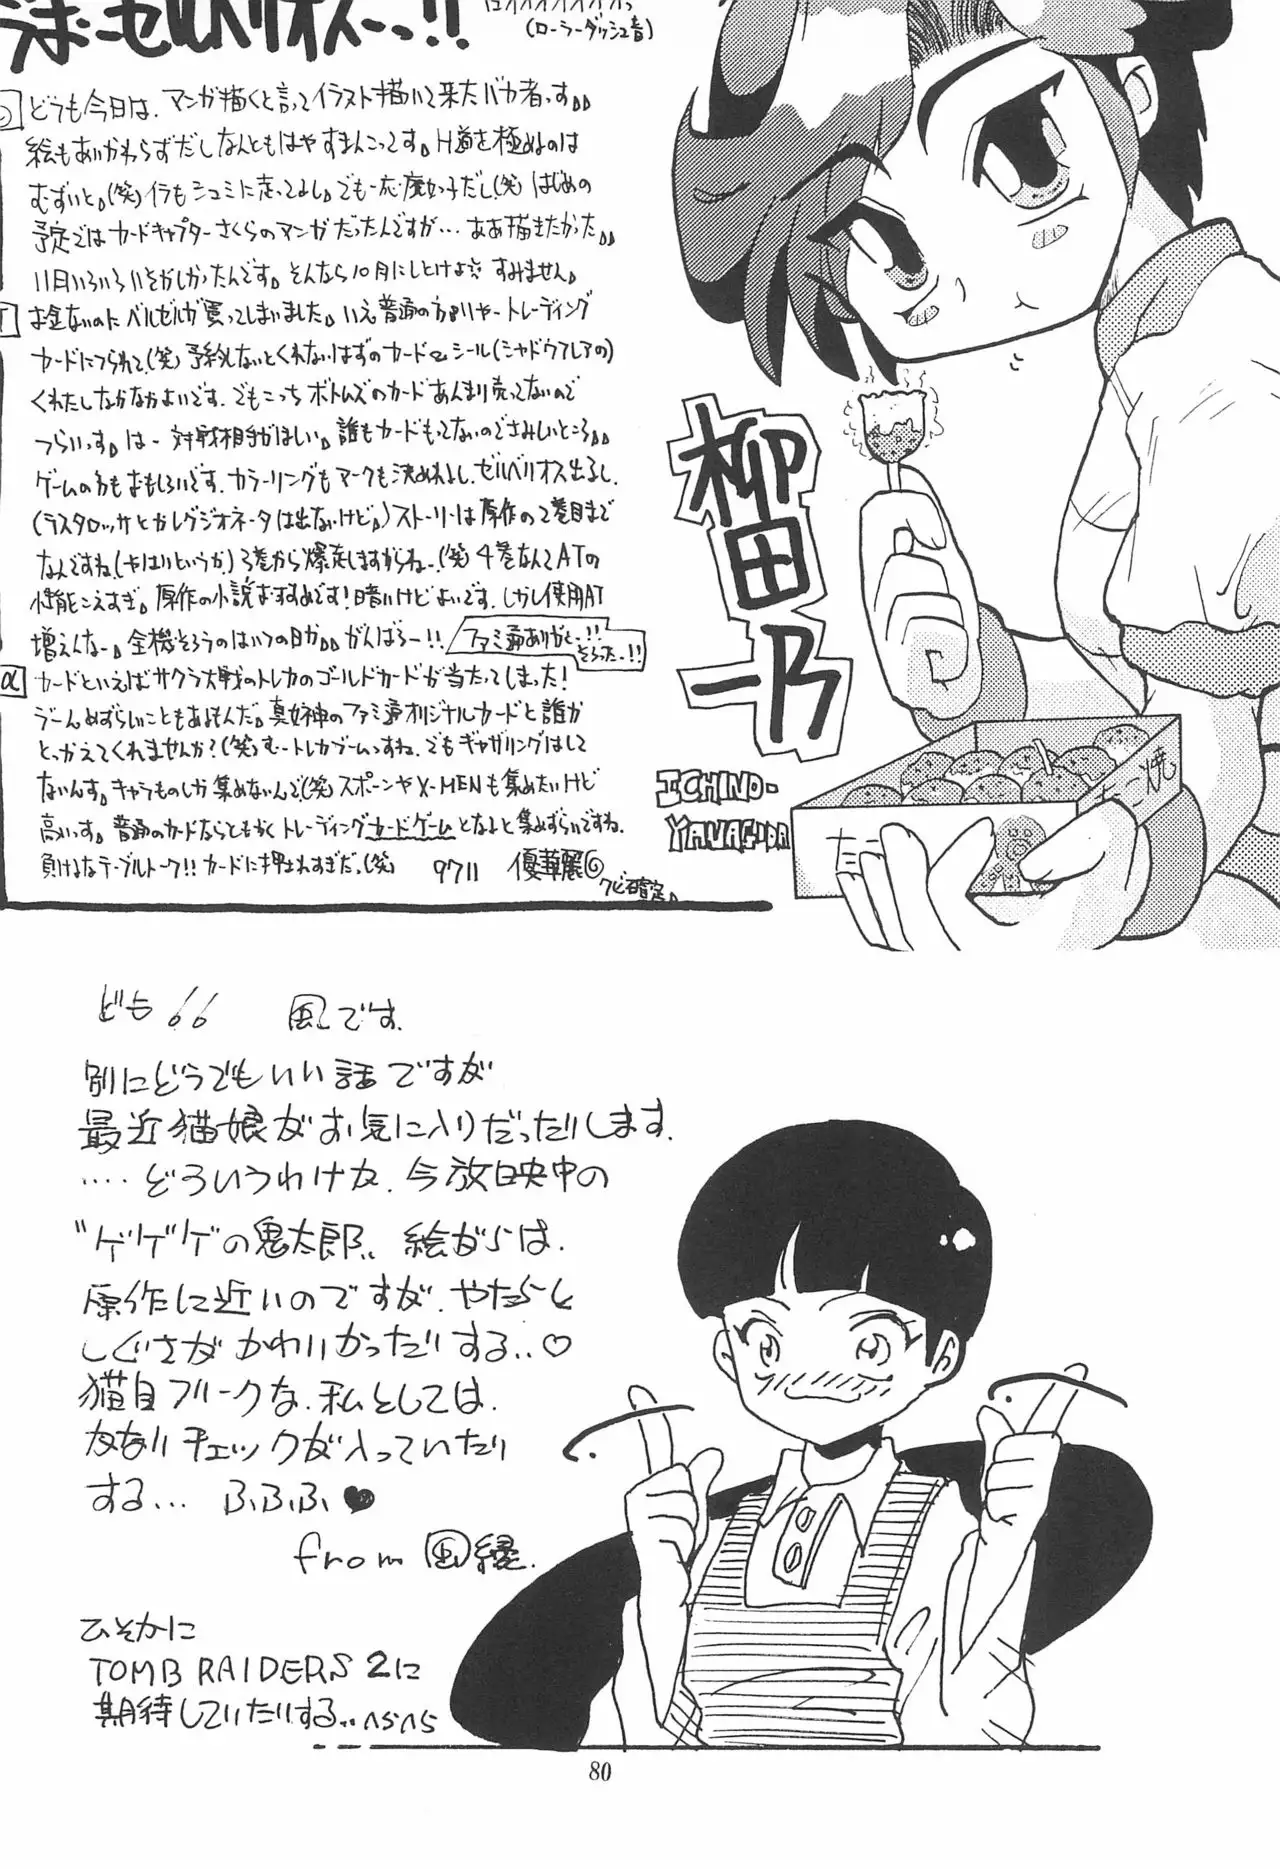 うぉーゼルベリオスーっ!!
(ローラーダッシュ音)
どうも今日は、マンガ描くと言ってイラスト描いて来たバカ者っす。
絵もあいかわらずだしなんともはやすまんこってす。H道を極めるのは
むずいと。(笑)イラもシュミに走ってるし。でも一応魔女っ子だし(笑)はじめの
予定ではカードキャプターさくらのマンガだったんですが…ああ描きたかった。
11月いろいろいそがしかったんです。そんなら10月にしとけよ すみません。
お金ないのにベルゼルが買ってしまいました。いえ普通の方
トレーディング
カードにつられて(笑)予約しないとくれないはずのカードとシール(シャドウフレアの)
くれたしなかなかよいです。でもこっちボトムズのカードあんまり売ってないので
つらいっす。はー対戦相手がほしい。誰もカードもってないのでさみしいところ。
ゲームの方もおもしろいです。カラーリングもマークも決めれるし、ゼルベリオス出るし、
(ラスタロッサとかレグジオネータは出ないけど。)ストーリーは原作の2巻目まで
なんですね(とはいうか)3巻から爆走しますからねー(笑)4巻なんてATの
性能こえすぎ。原作の小説おすすめです!暗いけどよいです。しかし使用AT
増えんなー。全機そろうのはいつの日か。がんばるー!!
ファミ通ありがとー!!
そろったー!!
カードといえばサクラ大戦のトレカのゴールドカードが当たってしまった!
うーんめずらしいこともあるもんだ。真女神のファミ通オリジナルカードと誰か
とっかえてくれませんか?(笑)むートレカブームっすね。でもギャザリングはして
ないんす。キャラものしか集めないんで(笑)スポーンやX-MENも集めたいけど
高いっす。普通のカードならともかくトレーディングカードゲームとなると集めずらいですね。
負けるなテーブルトーク!!カードに押されすぎだ。(笑)
9711 優華麗
クビ確定。
柳田一乃
ICHINO-
YANAGIDA
焼
ども!! 風です。
別にどうでもいい話ですが
最近猫娘がお気に入りだったりします。
‥‥どういうわけか、今放映中の
"ゲゲゲの鬼太郎" 絵がらは、
原作に近いのですが、やたらと
しぐさがかわいかったりする‥♡
猫目フリークな、私としては、
かなりチェックが入っていたり
する… ふふふ♥
from 風縁.
ひそかに
TOMB RAIDERS 2に
期待していたりする‥へらへら
80